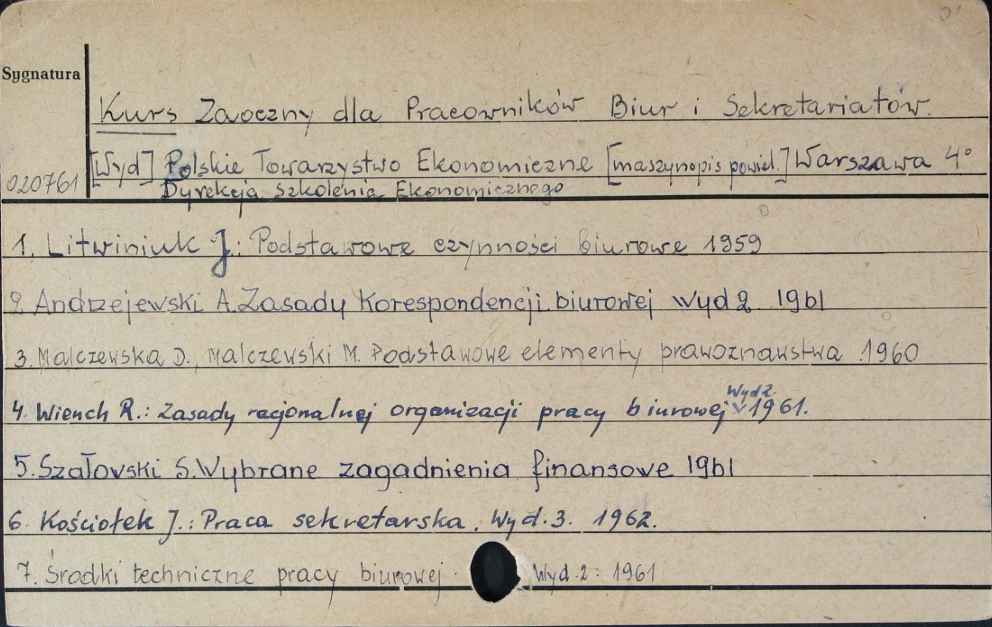 Sygnatura
Kurs Zaoczny dla Pracowników Biur i Sekretariatów.
020761 [Wyd] Polskie Towarzystwo Ekonomiczne [maszynopis powiel.] Warszawa 4°
Dyrekcja Szkolenia Ekonomicznego
1. Litwiniuk J.: Podstawowe czynności biurowe 1959
2 Andrzejewski A. Zasady Korespondencji biurowej wyd 2 1961
3. Malczewska D., Malczewski M. Podstawowe elementy prawoznawstwa 1960
Wyd 2
4. Wiench R.: Zasady racjonalnej organizacji pracy biurowej 1961.
5. Szałowski S. Wybrane zagadnienia finansowe 1961
6. Kościołek J.: Praca sekretarska. Wyd. 3. 1962.
7. Środki techniczne pracy biurowej. Wyd. 2. 1961